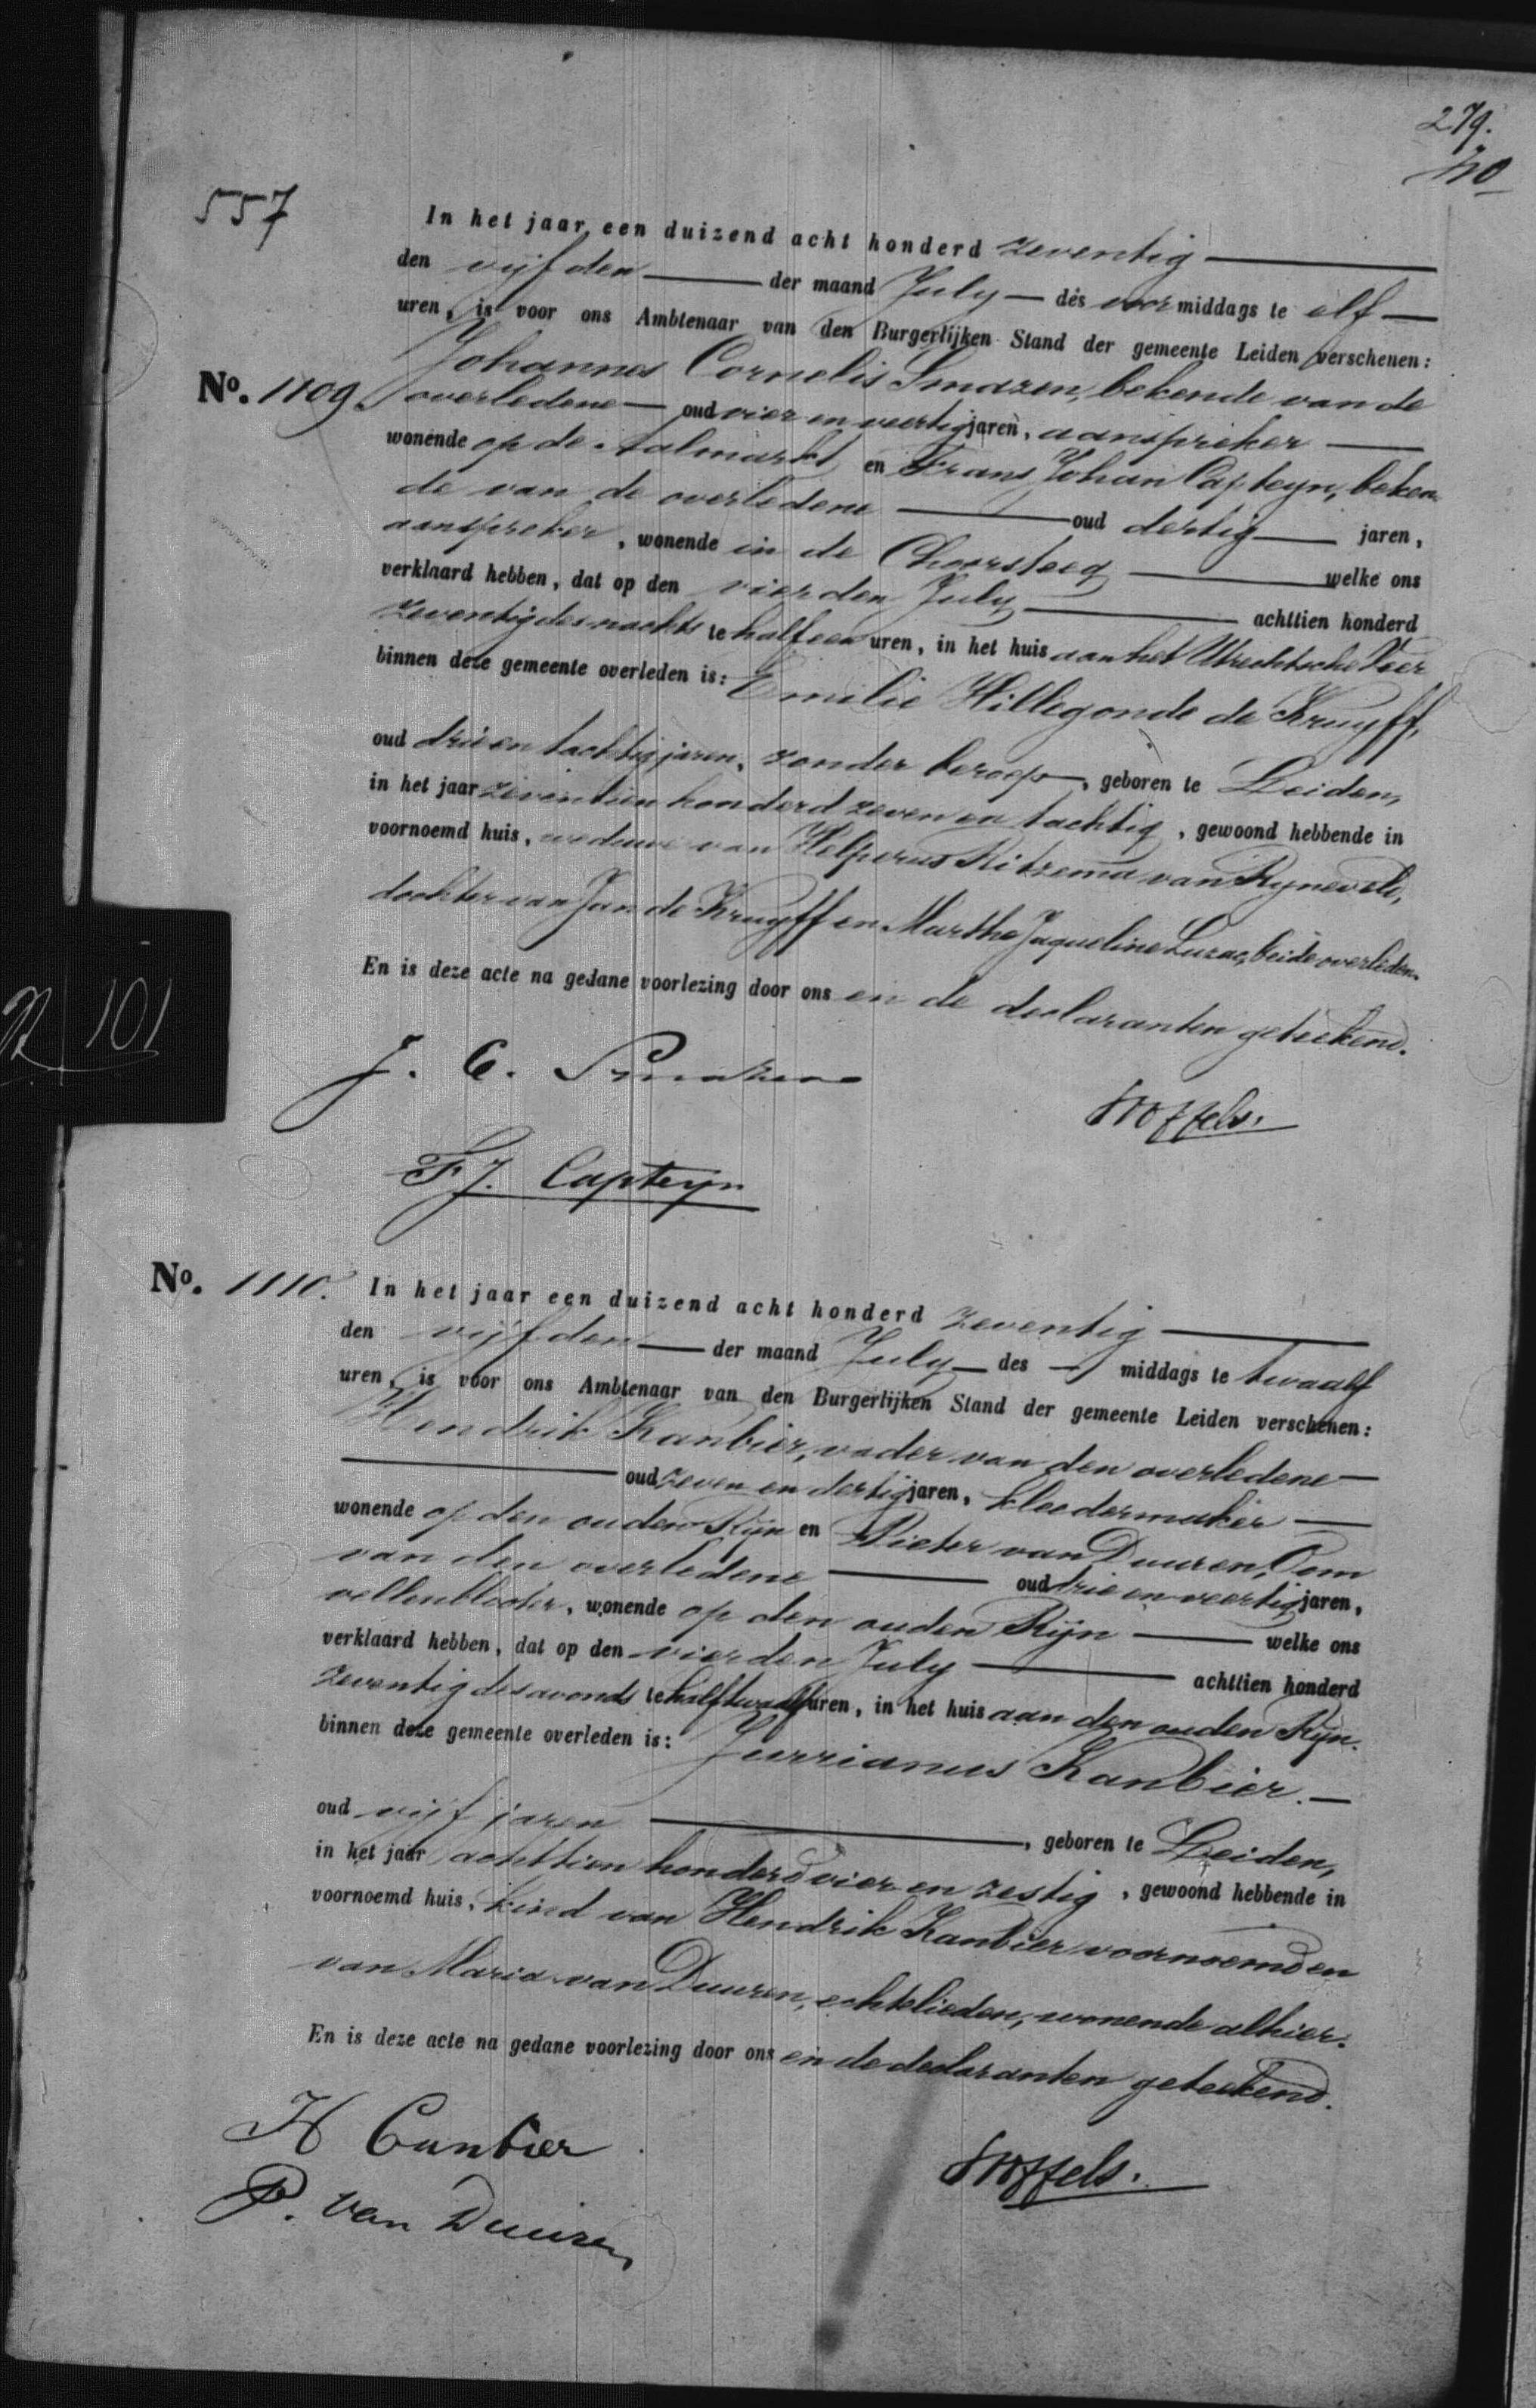 279.
40
557
In het jaar een duizend acht honderd zeventig
den vijfden der maand July des voor middags te elf
uren, is voor ons Ambtenaar van den Burgerlijken Stand der gemeente Leiden verschenen:
No. 1109. Johannes Cornelis Smazen, bekende van de
overledene oud vier en veertig jaren, aanspreker
wonende op de Aalmarkt en Frans Johan Capteyn, beken
de van de overledene oud dertig jaren,
aanspreker, wonende in de Choorsteeg welke ons
verklaard hebben, dat op den vierden July achttien honderd
zeventig des nachts te half een uren, in het huis aan het Utrechtsche Veer
binnen deze gemeente overleden is: Emilie Hillegonde de Kruyff,
oud drie en tachtig jaren, zonder beroep, geboren te Leiden,
in het jaar zeventien honderd zeven en tachtig, gewoond hebbende in
voornoemd huis, weduwe van Helperus Ritzema van Ryneveld,
dochter van Jan de Kruyff en Martha Jaqueline Luzac, beide overleden.
En is deze acte na gedane voorlezing door ons en de declaranten geteekend.
J. C. Smazen
Stoffels.
F. J. Capteyn
R 101
No. 1110. In het jaar een duizend acht honderd zeventig
den vijfden der maand July des middags te twaalf
uren, is voor ons Ambtenaar van den Burgerlijken Stand der gemeente Leiden verschenen:
Hendrik Kanbier, vader van den overledene
oud zeven en dertig jaren, kleedermaker
wonende op den ouden Rijn en Pieter van Duuren, Oom
van den overledene oud drie en veertig jaren,
vellenbloter, wonende op den ouden Rijn welke ons
verklaard hebben, dat op den vierden July achttien honderd
zeventig des avonds te half twaalf uren, in het huis aan den ouden Rijn
binnen deze gemeente overleden is: Jurrianus Kanbier.
oud vijf jaren, geboren te Leiden,
in het jaar achttien honderd vier en zestig, gewoond hebbende in
voornoemd huis, kind van Hendrik Kanbier voornoemd en
van Maria van Duuren, echtelieden, wonende alhier.
En is deze acte na gedane voorlezing door ons en de declaranten geteekend.
H Canbier
Stoffels.
P. van Duuren